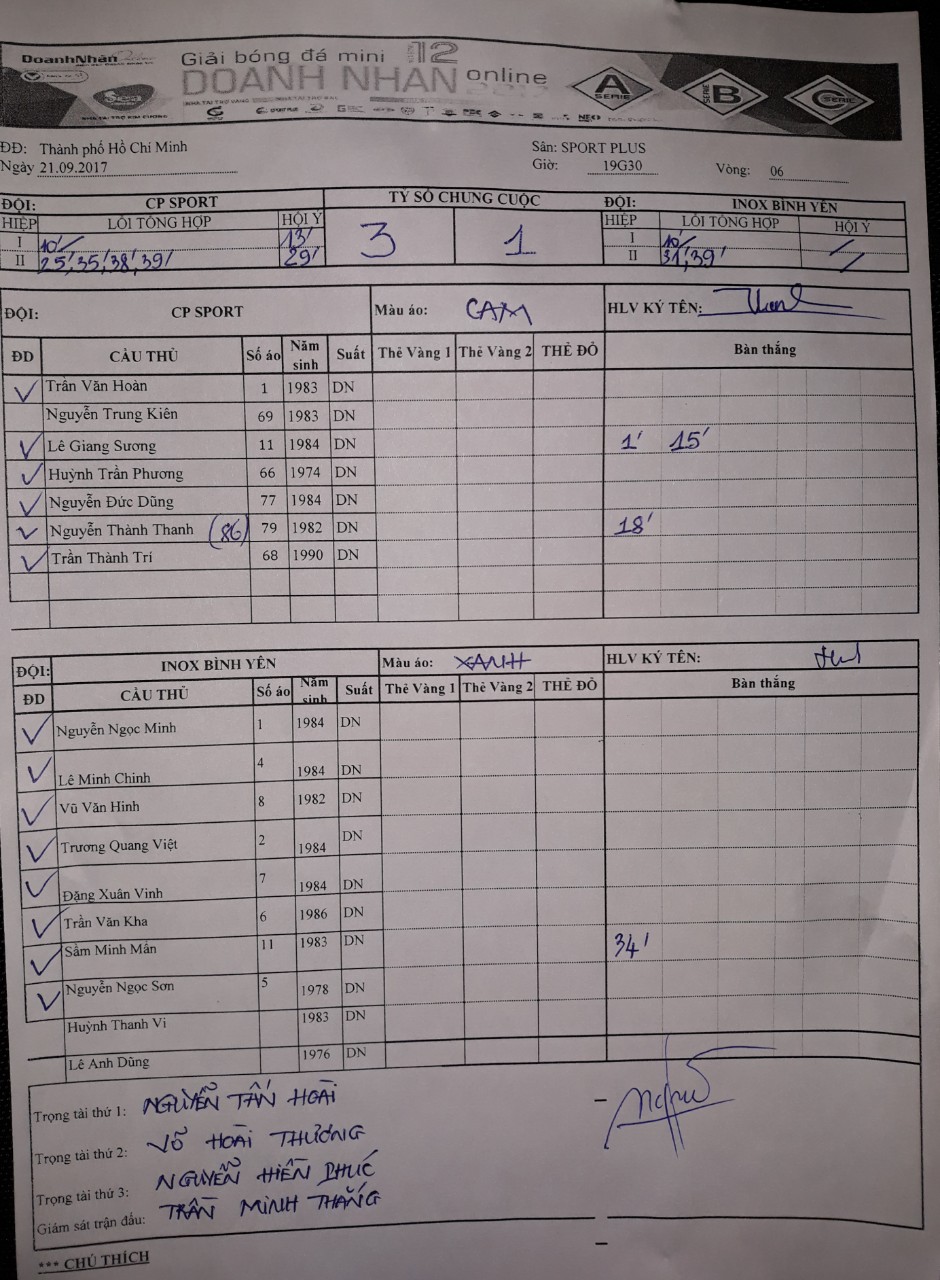 DoanhNhân
Giải bóng đá mini
LẦN 12
DOANH NHÂN online
2017
A SERIE
B SERIE
C SERIE
NHÀ TÀI TRỢ KIM CƯƠNG
ĐĐ: Thành phố Hồ Chí Minh Sân: SPORT PLUS
Ngày 21.09.2017 Giờ: 19G30 Vòng: 06
ĐỘI: CP SPORT TỶ SỐ CHUNG CUỘC ĐỘI: INOX BÌNH YÊN
HIỆP LỖI TỔNG HỢP HỘI Ý 3 1 HIỆP LỖI TỔNG HỢP HỘI Ý
I 10' 13' I 10' /
II 25', 35', 38', 39' 29' II 31', 39' /
ĐỘI: CP SPORT Màu áo: CAM HLV KÝ TÊN:
ĐD CẦU THỦ Số áo Năm sinh Suất Thẻ Vàng 1 Thẻ Vàng 2 THẺ ĐỎ Bàn thắng
✓ Trần Văn Hoàn 1 1983 DN
Nguyễn Trung Kiên 69 1983 DN
✓ Lê Giang Sương 11 1984 DN 1' 15'
✓ Huỳnh Trần Phương 66 1974 DN
✓ Nguyễn Đức Dũng 77 1984 DN
✓ Nguyễn Thành Thanh (86) 79 1982 DN 18'
✓ Trần Thành Trí 68 1990 DN
ĐỘI: INOX BÌNH YÊN Màu áo: XANH HLV KÝ TÊN:
ĐD CẦU THỦ Số áo Năm sinh Suất Thẻ Vàng 1 Thẻ Vàng 2 THẺ ĐỎ Bàn thắng
✓ Nguyễn Ngọc Minh 1 1984 DN
✓ Lê Minh Chinh 4 1984 DN
✓ Vũ Văn Hinh 8 1982 DN
✓ Trương Quang Việt 2 1984 DN
✓ Đặng Xuân Vinh 7 1984 DN
✓ Trần Văn Kha 6 1986 DN
✓ Sầm Minh Mẫn 11 1983 DN 34'
✓ Nguyễn Ngọc Sơn 5 1978 DN
Huỳnh Thanh Vi 1983 DN
Lê Anh Dũng 1976 DN
Trọng tài thứ 1: NGUYỄN TẤN HOÀI
Trọng tài thứ 2: VÕ HOÀI THƯƠNG
Trọng tài thứ 3: NGUYỄN HIỀN PHÚC
Giám sát trận đấu: TRẦN MINH THẮNG
*** CHÚ THÍCH